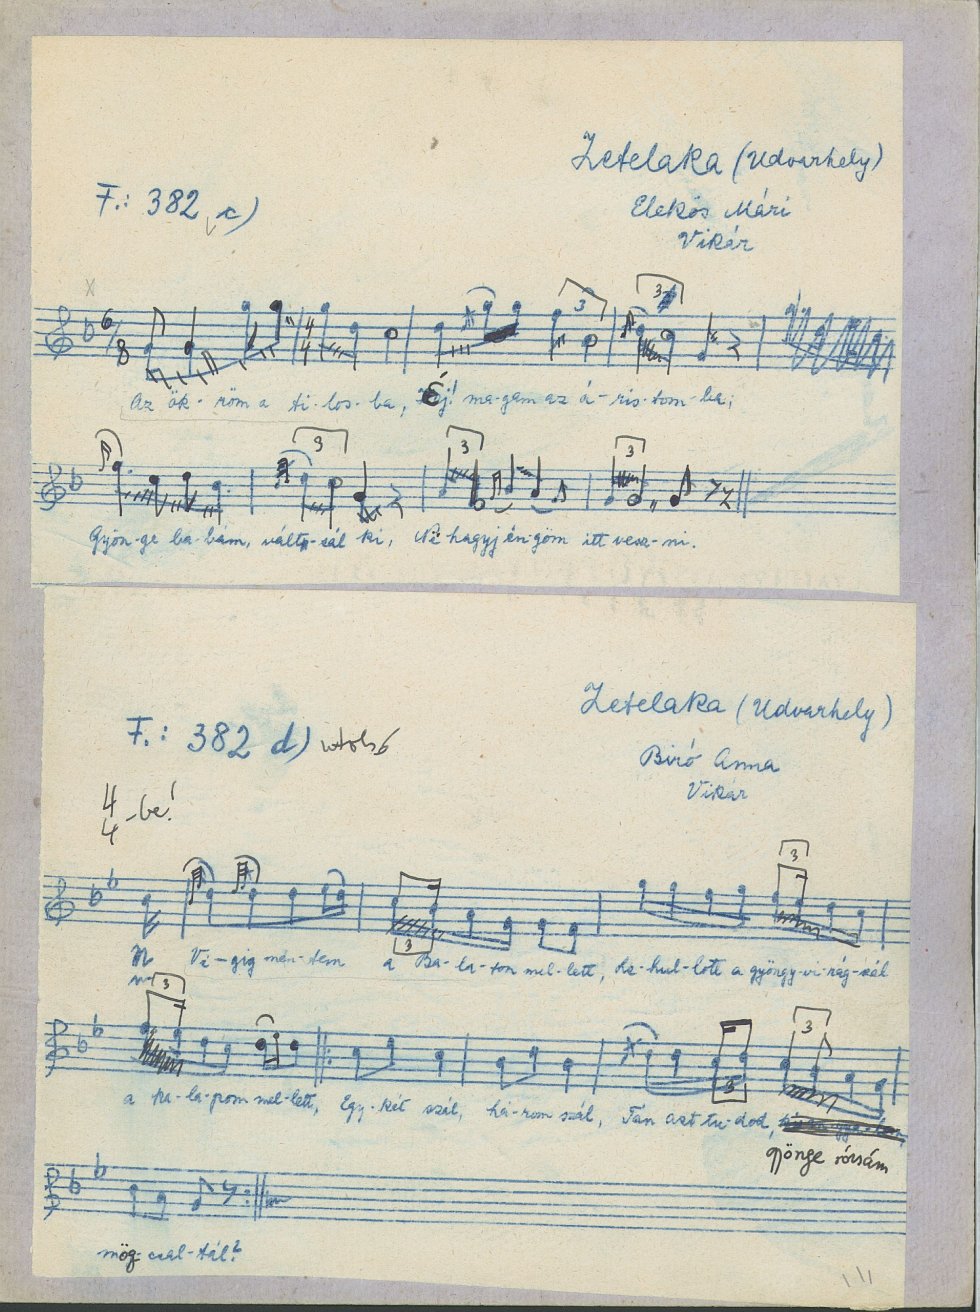 Zetelaka (Udvarhely)
F.: 382 c)
Elekös Mári
Vikár
6/8
4/4
3
3
Az ök-röm a ti-los-ba, Éj! ma-gam az á-ris-tom-ba,
3
3
3
Gyön-ge ba-bám, válts-sál ki, Ne hagyj én-göm itt vesz-ni.
Zetelaka (Udvarhely)
F.: 382 d) utolsó
Biró Anna
Vikár
4/4-be!
3
3
Vi-gig men-tem a Ba-la-ton mel-lett, Le-hul-lott a gyöngy-vi-rág-szál
3
3
3
a ka-la-pom mel-lett, Egy-két szál, há-rom szál, Tán azt tu-dod,
gyönge rózsám
mög-csal-tál?